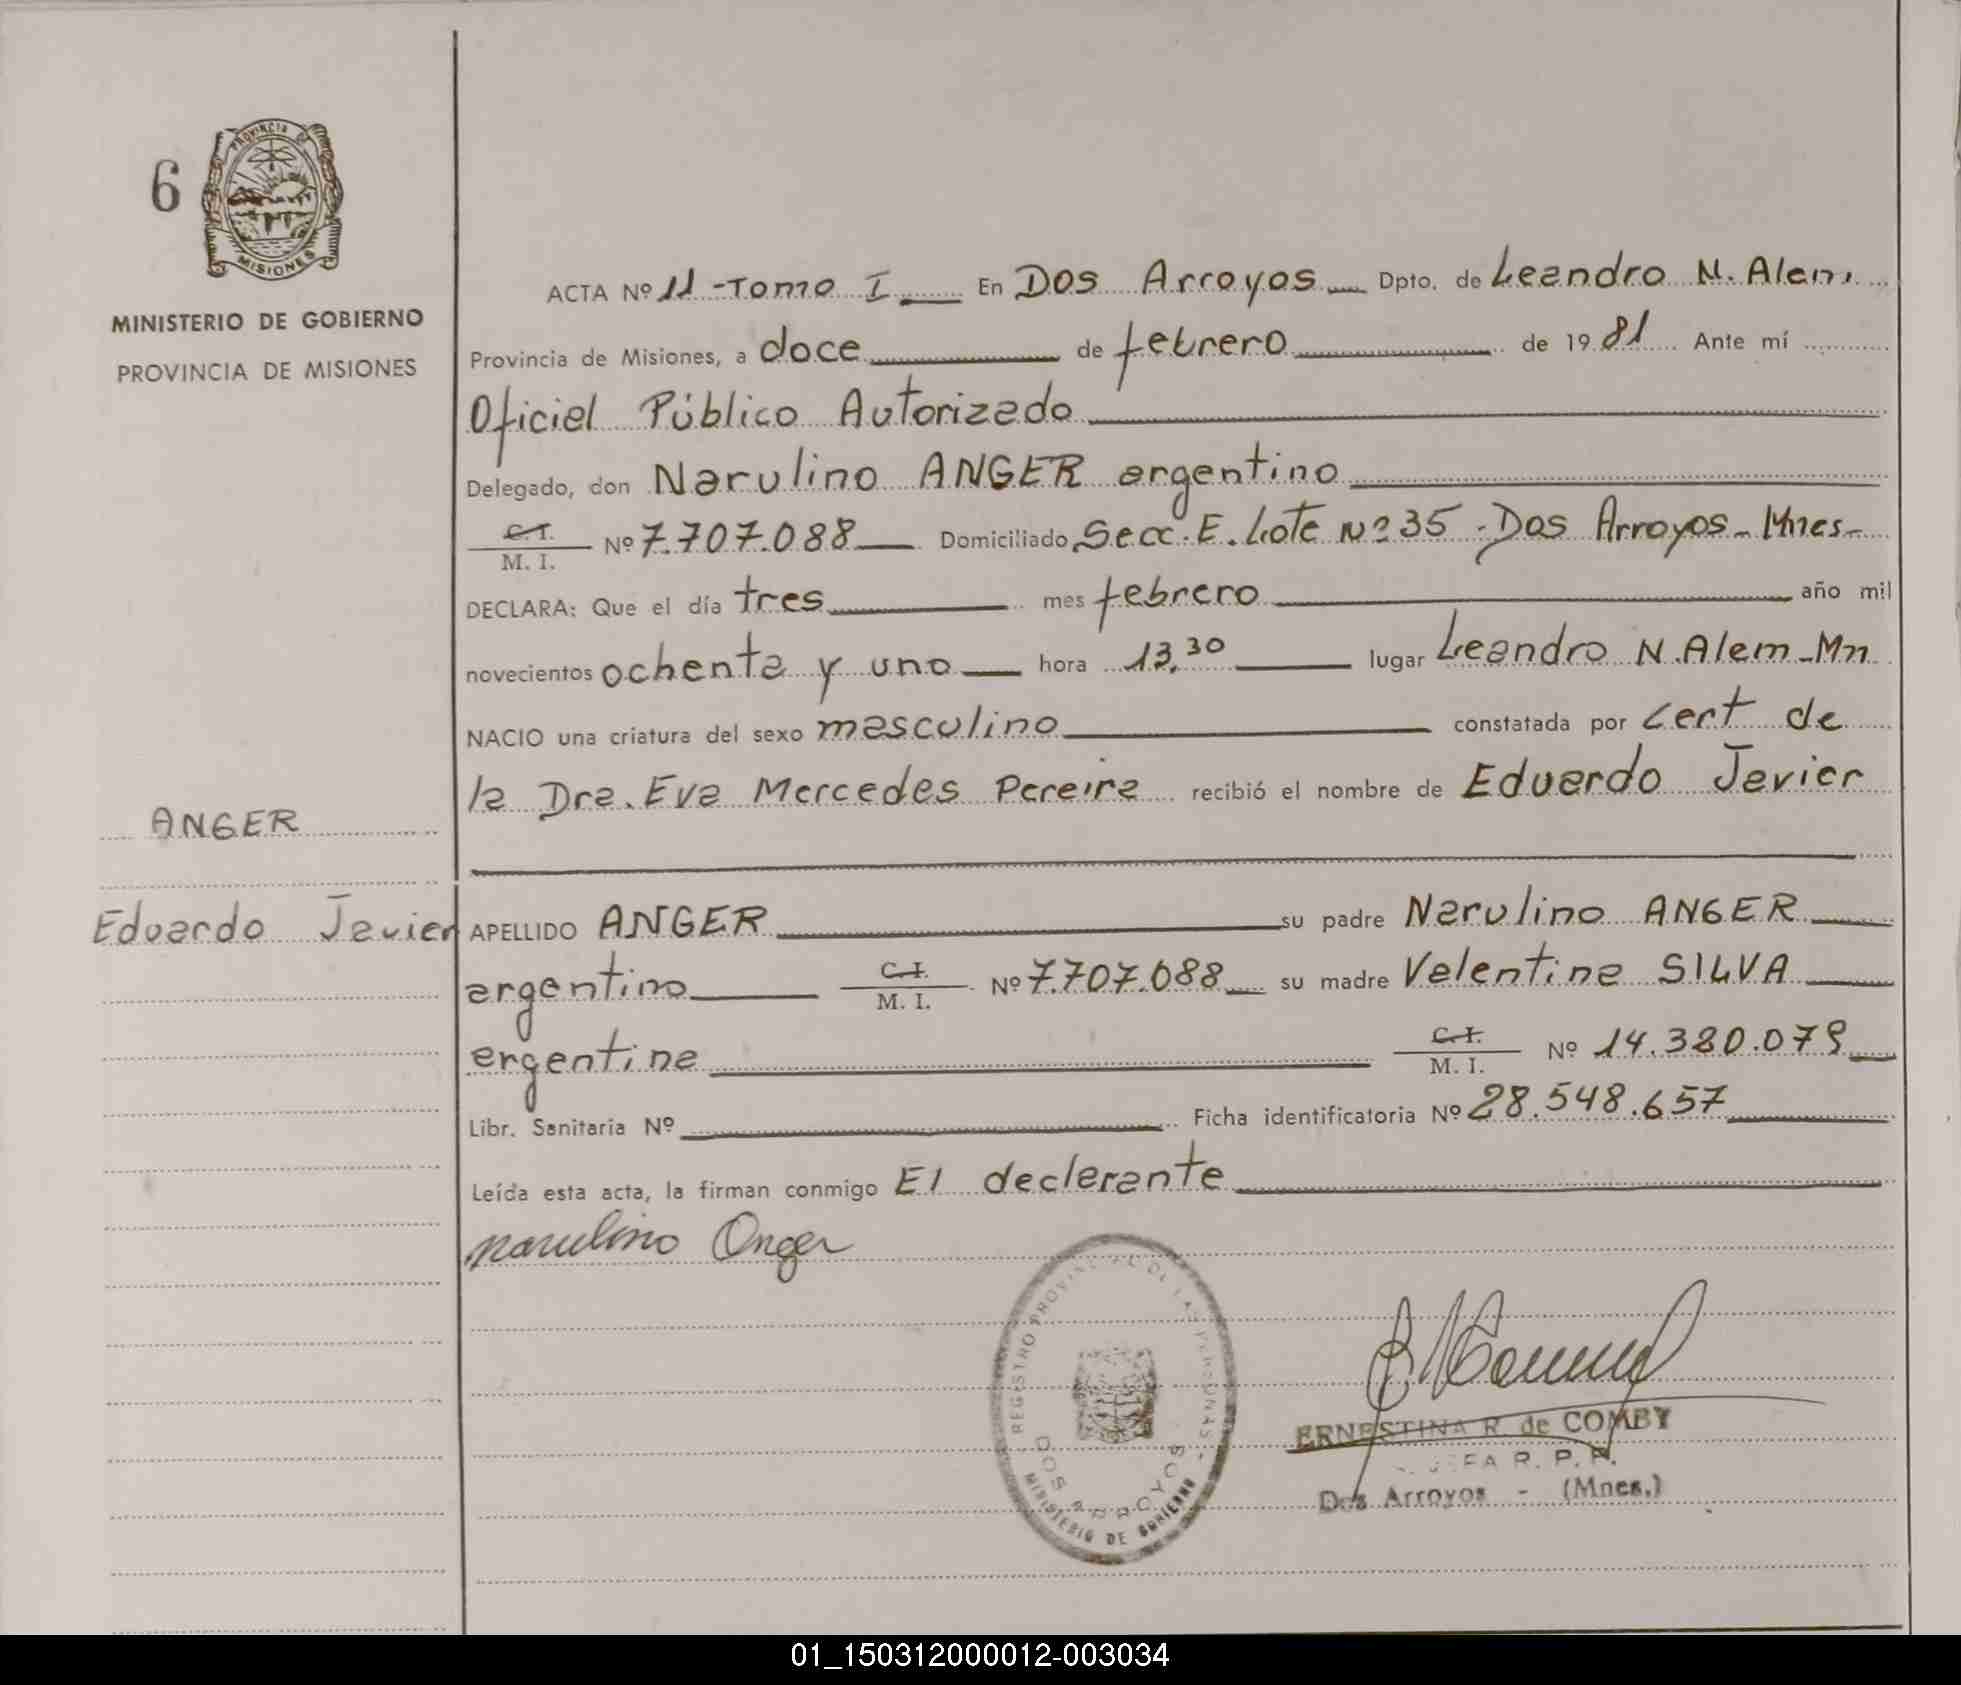 PROVINCIA DE
MISIONES
6
MINISTERIO DE GOBIERNO
PROVINCIA DE MISIONES
ANGER
Eduardo Javier
ACTA Nº 11 - Tomo I En Dos Arroyos Dpto. de Leandro N. Alem
Provincia de Misiones, a doce de febrero de 1981 Ante mí
Oficial Público Autorizado
Delegado, don Narulino ANGER argentino
C.I. M. I. Nº 7.707.088 Domiciliado Secc. E. Lote Nº 35 - Dos Arroyos - Mnes -
DECLARA: Que el día tres mes febrero año mil
novecientos ochenta y uno hora 13,30 lugar Leandro N. Alem - Mn
NACIO una criatura del sexo masculino constatada por cert de
la Dra. Eva Mercedes Pereira recibió el nombre de Eduardo Javier
APELLIDO ANGER su padre Narulino ANGER
argentino C.I. M. I. Nº 7.707.088 su madre Valentina SILVA
argentina C.I. M. I. Nº 14.380.079
Libr. Sanitaria Nº Ficha identificatoria Nº 28.548.657
Leída esta acta, la firman conmigo El declarante
narulino Onger
REGISTRO PROVINCIAL DE LAS PERSONAS
DOS ARROYOS
MINISTERIO DE GOBIERNO
ERNESTINA R. de COMBY
R. P. P.
Dos Arroyos - (Mnes.)
01_150312000012-003034